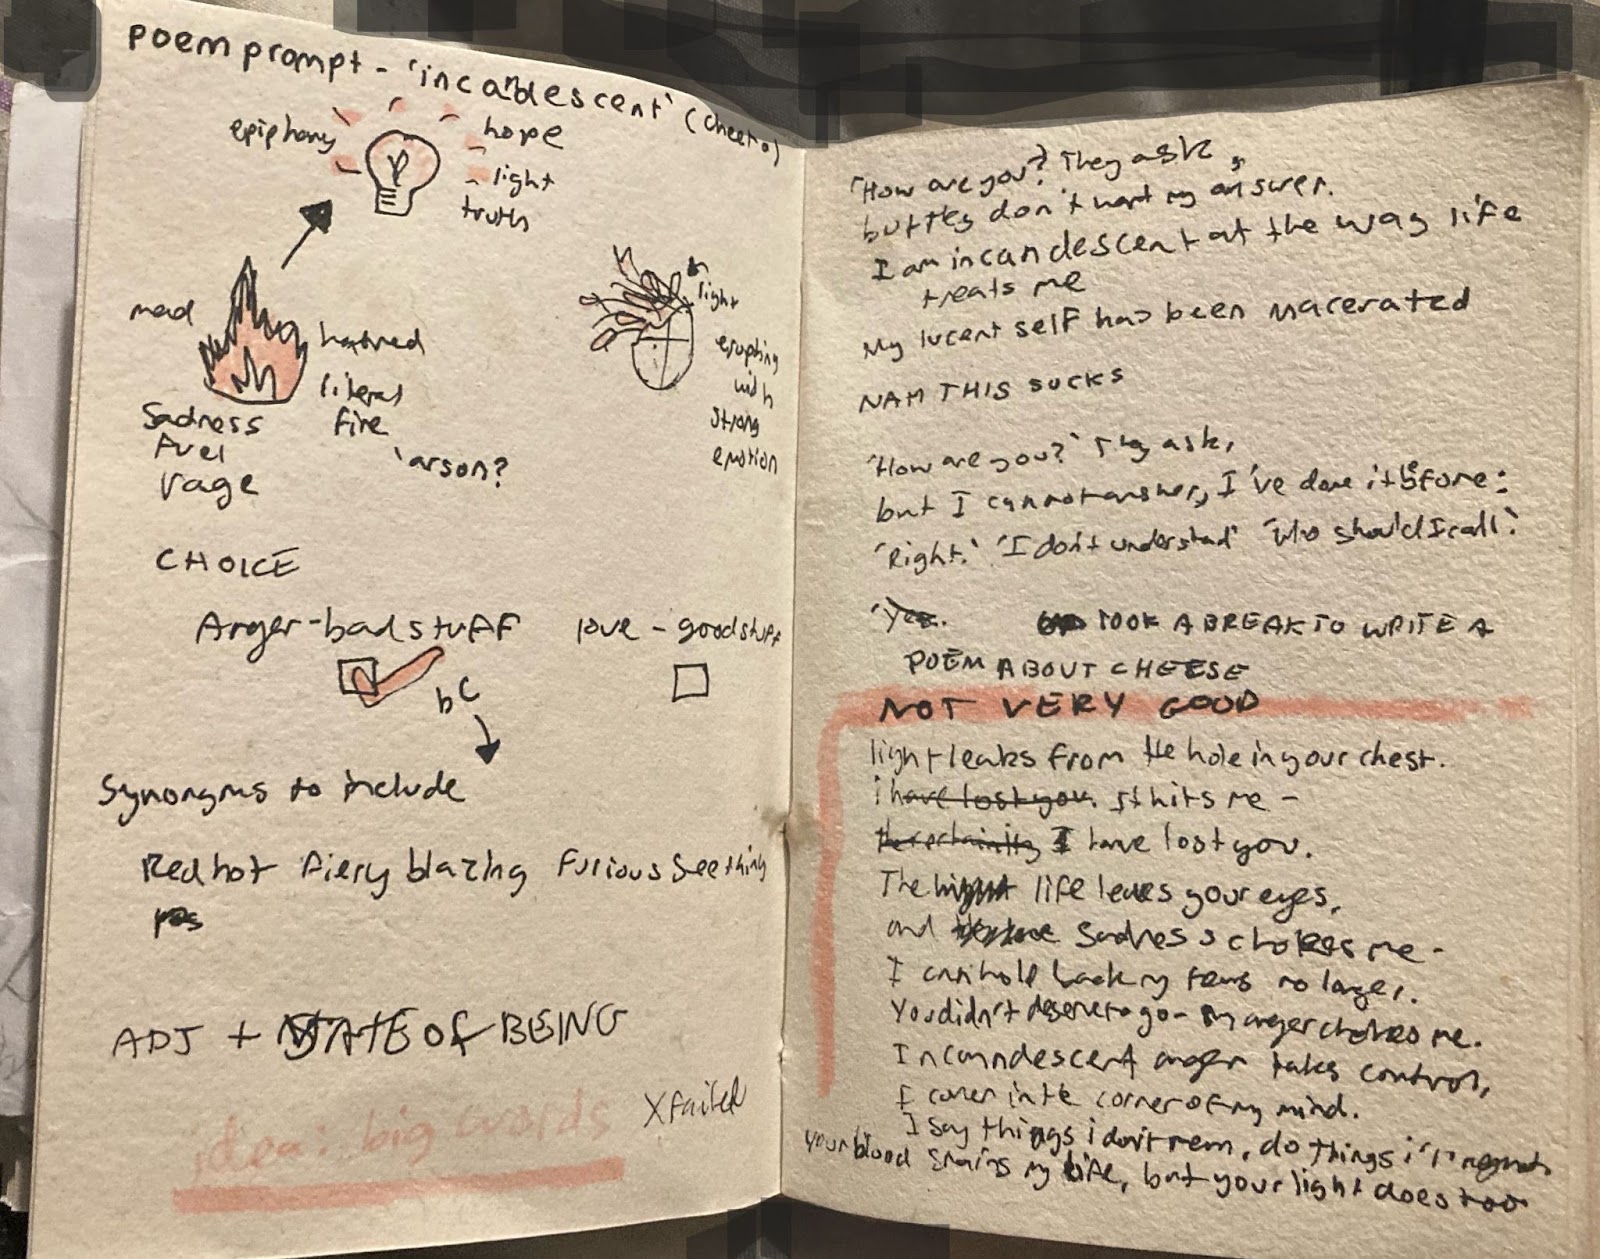 poem prompt - 'incandescent' (cheeto)
epiphany
hope
light
truth
mad
hatred
literal
fire
Sadness
fuel
rage
'arson?
light
erupting
with
strong
emotion
CHOICE
Anger - bad stuff
love - good stuff
bc
Synonyms to include
Red hot fiery blazing furious seething
ADJ + STATE OF BEING
idea: big words
X failed
'How are you? They ask,
but they don't want my answer.
I am incandescent at the way life
treats me
My lucent self has been macerated
NAH THIS SUCKS
'How are you?' They ask,
but I cannot answer, I've done it before:
'Right.' 'I don't understand' 'Who should I call.'
'Yes. TOOK A BREAK TO WRITE A
POEM ABOUT CHEESE
NOT VERY GOOD
light leaks from the hole in your chest.
i have lost you. It hits me -
the certainity I have lost you.
The life leaves your eyes,
and sadness chokes me -
I can't hold back my tears no longer.
You didn't deserve to go - my anger chokes me.
Incanndescent anger takes control,
I cower in the corner of my mind.
I say things i don't mean, do things i'll regret.
your blood stains my life, but your light does too